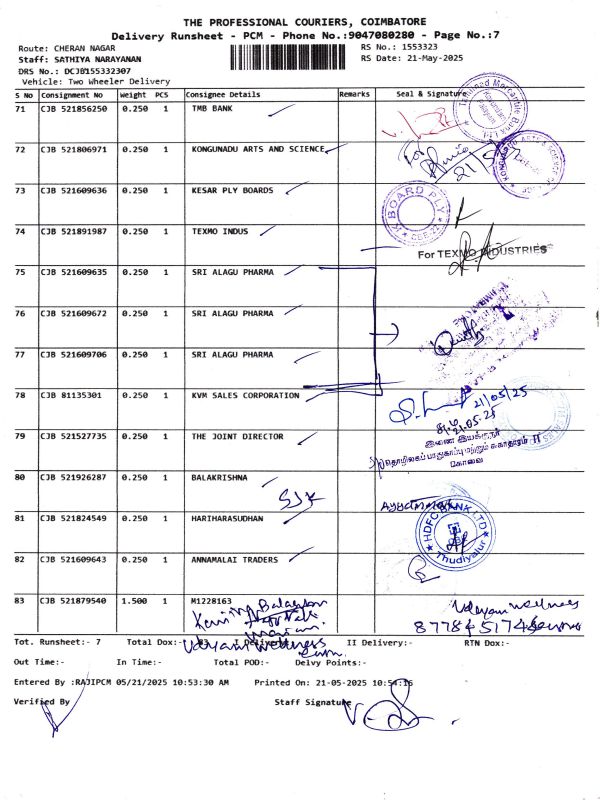 THE PROFESSIONAL COURIERS, COIMBATORE
Delivery Runsheet - PCM - Phone No.:9047080280 - Page No.:7
Route: CHERAN NAGAR
RS No.: 1553323
Staff: SATHIYA NARAYANAN
RS Date: 21-May-2025
DRS No.: DCJB155332307
Vehicle: Two Wheeler Delivery
S No Consignment No Weight PCS Consignee Details Remarks Seal & Signature
71 CJB 521856250 0.250 1 TMB BANK
72 CJB 521806971 0.250 1 KONGUNADU ARTS AND SCIENCE
For
21/5/
73 CJB 521609636 0.250 1 KESAR PLY BOARDS
K BOARD PLY
CBE-22
74 CJB 521891987 0.250 1 TEXMO INDUS
For TEXMO INDUSTRIES
75 CJB 521609635 0.250 1 SRI ALAGU PHARMA
76 CJB 521609672 0.250 1 SRI ALAGU PHARMA
77 CJB 521609706 0.250 1 SRI ALAGU PHARMA
78 CJB 81135301 0.250 1 KVM SALES CORPORATION
21/05/25
21.05.25
79 CJB 521527735 0.250 1 THE JOINT DIRECTOR
இணை இயக்குநர்
தொழிலகப் பாதுகாப்பு மற்றும் சுகாதாரம் II
கோவை
80 CJB 521926287 0.250 1 BALAKRISHNA
81 CJB 521824549 0.250 1 HARIHARASUDHAN
HDFC BANK LTD
Thudiyalur
82 CJB 521609643 0.250 1 ANNAMALAI TRADERS
83 CJB 521879540 1.500 1 M1228163
Udayam Wellness
Tot. Runsheet:- 7 Total Dox:- 83 I Delivery:- II Delivery:- RTN Dox:-
Out Time:- In Time:- Total POD:- Delvy Points:-
Entered By :RAJIPCM 05/21/2025 10:53:30 AM Printed On: 21-05-2025 10:54:16
Verified By Staff Signature